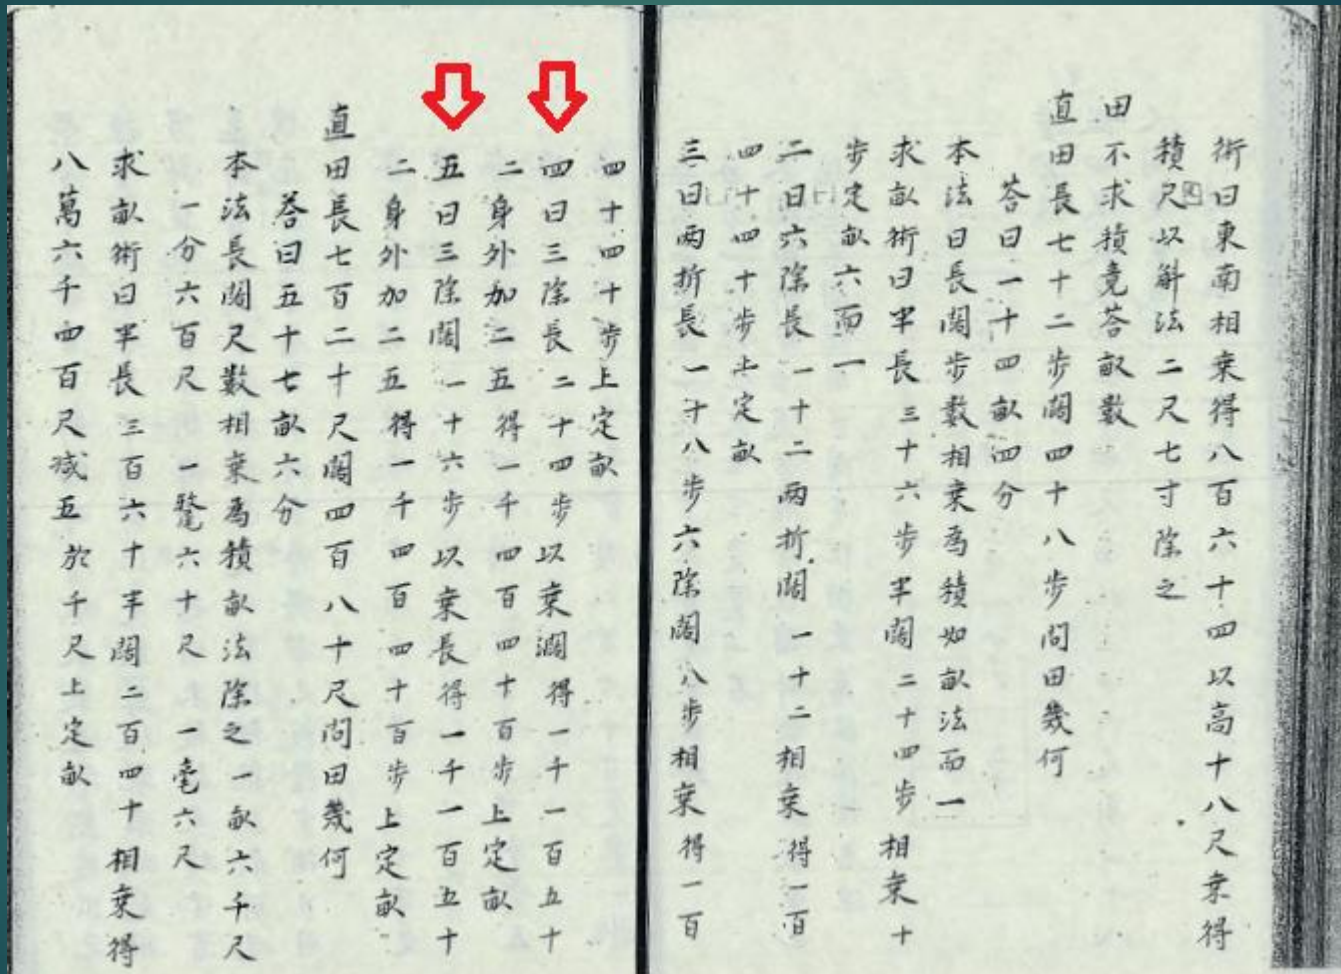 術曰東南相乘得八百六十四以高十八尺乘得
積尺以斛法二尺七寸除之
田不求積竟荅畝數
直田長七十二步闊四十八步問田幾何
荅曰一十四畝四分
本法曰長闊步數相乘為積如畝法而一
求畝術曰半長三十六步半闊二十四步相乘十
步定畝六而一
二曰六除長一十二兩折闊一十二相乘得一百
四十四十步上定畝
三曰兩折長一十八步六除闊八步相乘得一百
四十四十步上定畝
四曰三除長二十四步以乘澗得一千一百五十
二身外加二五得一千四百四十百步上定畝
五曰三除闊一十六步以乘長得一千一百五十
二身外加二五得一千四百四十百步上定畝
直田長七百二十尺闊四百八十尺問田幾何
荅曰五十七畝六分
本法長闊尺數相乘為積畝法除之一畝六千尺
一分六百尺一釐六十尺一毫六尺
求畝術曰半長三百六十半闊二百四十相乘得
八萬六千四百尺減五於千尺上定畝